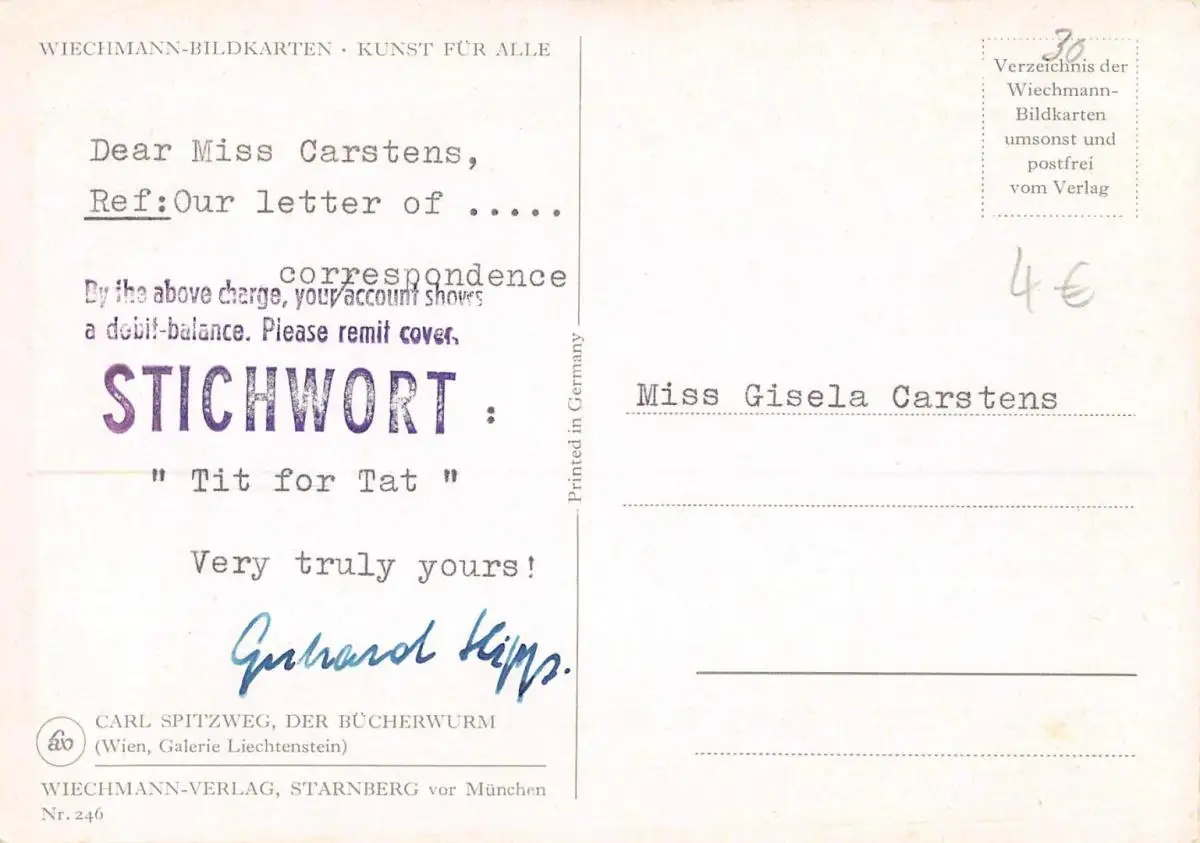 WIECHMANN-BILDKARTEN · KUNST FÜR ALLE
Dear Miss Carstens,
Ref:Our letter of .....
correspondence
By the above charge, your/account shows
a debit-balance. Please remit cover.
STICHWORT :
" Tit for Tat "
Very truly yours!
Gerhard
CARL SPITZWEG, DER BÜCHERWURM
(Wien, Galerie Liechtenstein)
WIECHMANN-VERLAG, STARNBERG vor München
Nr. 246
Printed in Germany
30
Verzeichnis der
Wiechmann-
Bildkarten
umsonst und
postfrei
vom Verlag
4 €
Miss Gisela Carstens